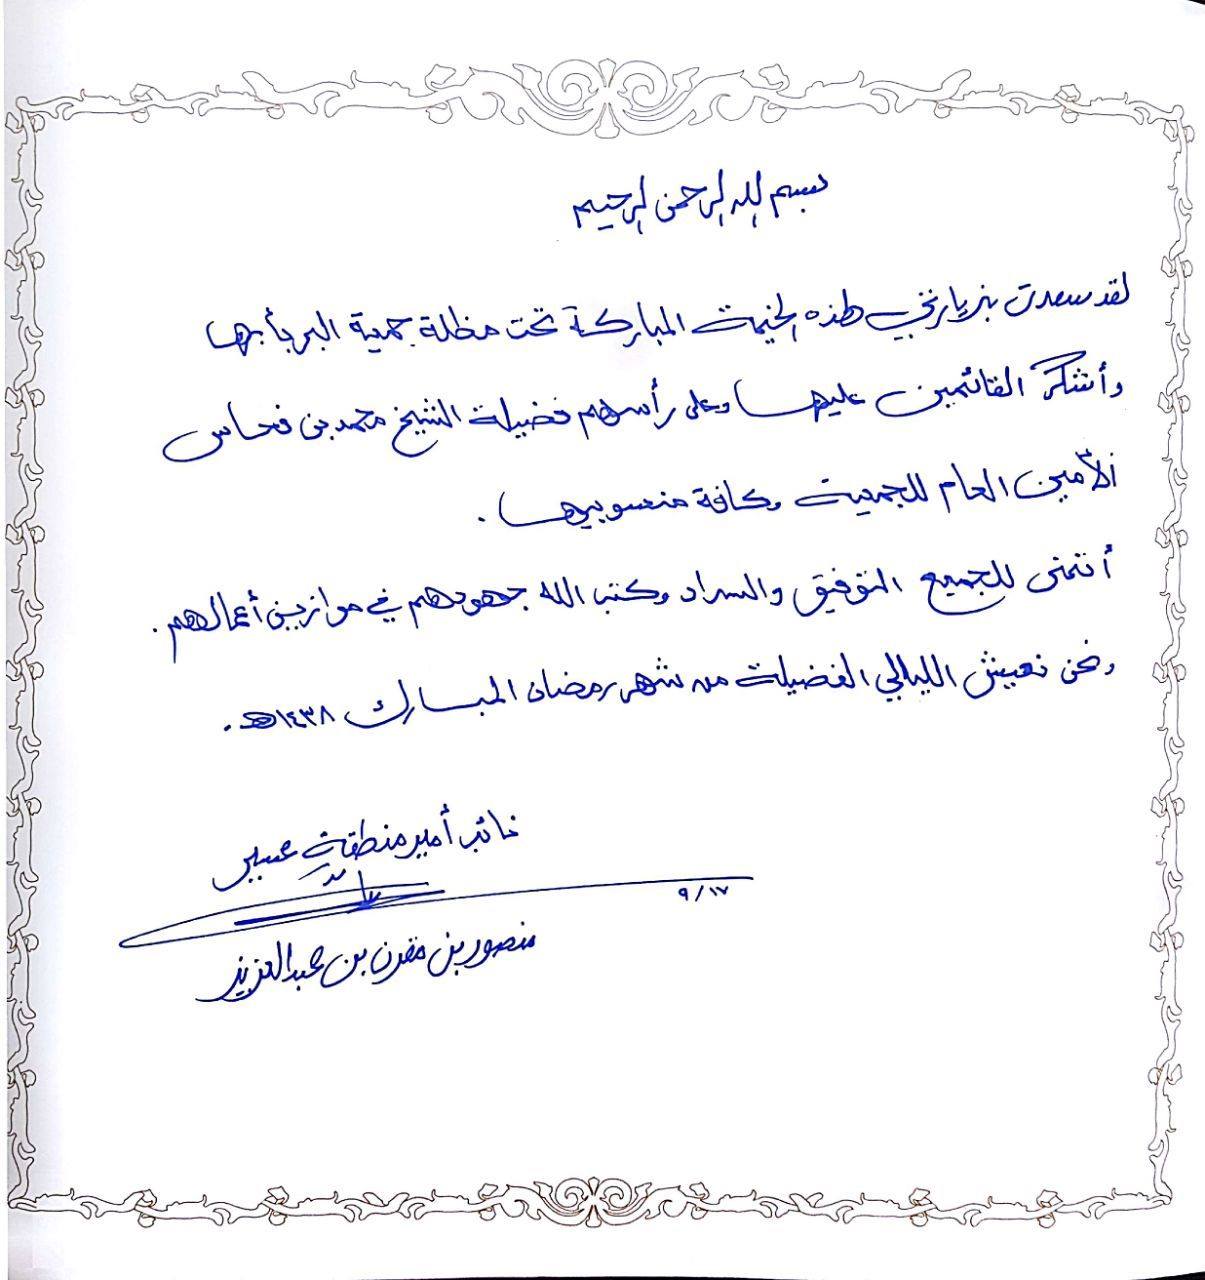 بسم الله الرحمن الرحيم
لقد سعدت بزيارتي لهذه الخيمة المباركة تحت مظلة جمعية البر بأبها
وأشكر القائمين عليها وعلى رأسهم فضيلة الشيخ محمد بن فحاس
الأمين العام للجمعية وكافة منسوبيها .
أتمنى للجميع التوفيق والسداد وكتب الله جهودهم في موازين أعمالهم .
ونحن نعيش الليالي الفضيلة من شهر رمضان المبارك ١٤٣٨هـ .
نائب أمير منطقة عسير
٩/١٧
منصور بن مقرن بن عبدالعزيز